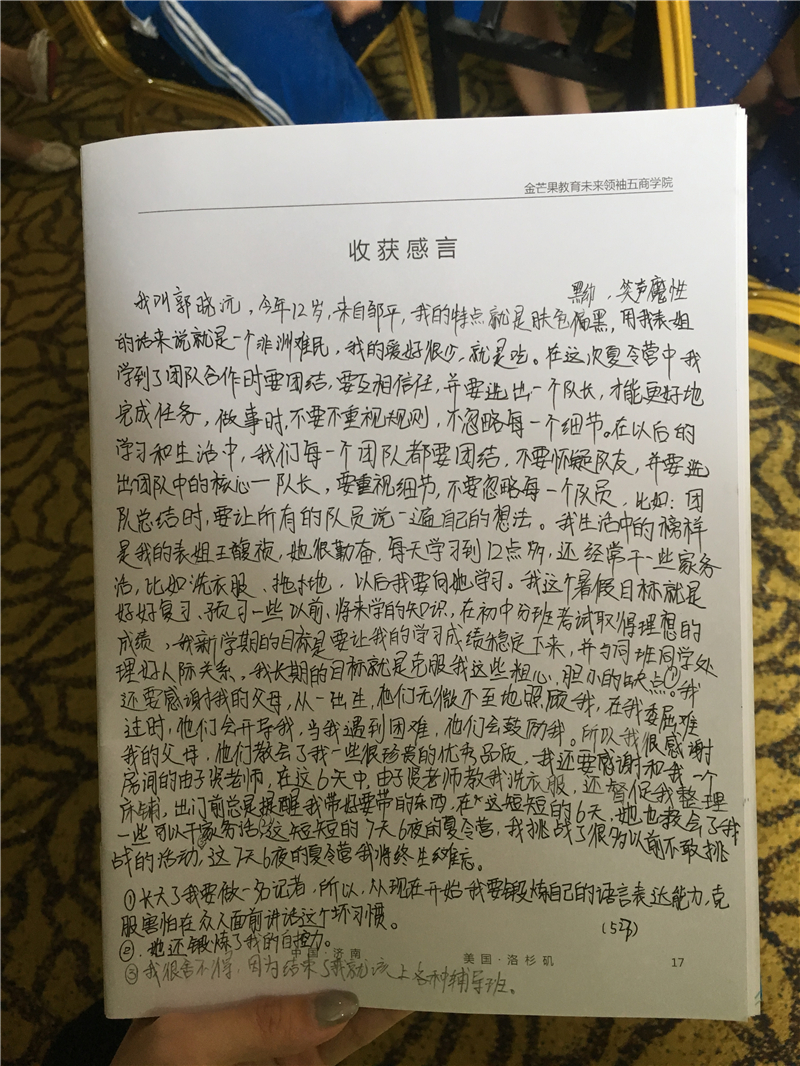 金芒果教育未来领袖五商学院
收获感言
黑幼、笑声魔性
我叫郭晓沅，今年12岁，来自邹平，我的特点就是肤色偏黑，用我表姐
的话来说就是一个非洲难民，我的爱好很少，就是吃。在这次夏令营中我
学到了团队合作时要团结，要互相信任，并要选出一个队长，才能更好地
完成任务，做事时，不要不重视规则，不忽略每一个细节。在以后的
学习和生活中，我们每一个团队都要团结，不要怀疑队友，并要选
出团队中的核心—队长，要重视细节，不要忽略每一个队员，比如：团
队总结时，要让所有的队员说一遍自己的想法。我生活中的榜样
是我的表姐王馥祯，她很勤奋，每天学习到12点多，还经常干一些家务
活，比如洗衣服、拖地，以后我要向她学习。我这个暑假目标就是
好好复习、预习一些以前、将来学的知识，在初中分班考试取得理想的
成绩，我新学期的目标是要让我的学习成绩稳定下来，并与同班同学处
理好人际关系。我长期的目标就是克服我这些粗心、胆小的缺点。①我
还要感谢我的父母，从一出生，他们无微不至地照顾我，在我委屈难
过时，他们会开导我，当我遇到困难，他们会鼓励我。所以我很感谢
我的父母，他们教会了我一些很珍贵的优秀品质，我还要感谢和我一个
房间的由子贤老师，在这6天中，由子贤老师教我洗衣服，还督促我整理
床铺，出门前总是提醒我带好要带的东西，在这短短的6天，她也教会了我
一些可以干家务活②这短短的7天6夜的夏令营，我挑战了很多以前不敢挑
战的活动，③这7天6夜的夏令营我将终生难忘。
①长大了我要做一名记者，所以，从现在开始我要锻炼自己的语言表达能力，克
服害怕在众人面前讲话这个坏习惯。
②.她还锻炼了我的自控力。
中国·济南 美国·洛杉矶 17
③我很舍不得，因为结束了我就该上各种辅导班。